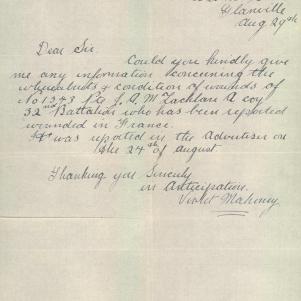 Glanville
Aug 29th
Dear Sir
Could you kindly give
me any information concerning the
whereabouts & condition of wounds of
No 1343 Pte J. A. McLachlan A coy
32nd Battalion who has been reported
wounded in France.
It was reported in the Advertiser on
the 24th of August
Thanking you Sincerly
in Anticipation.
Violet Mahoney